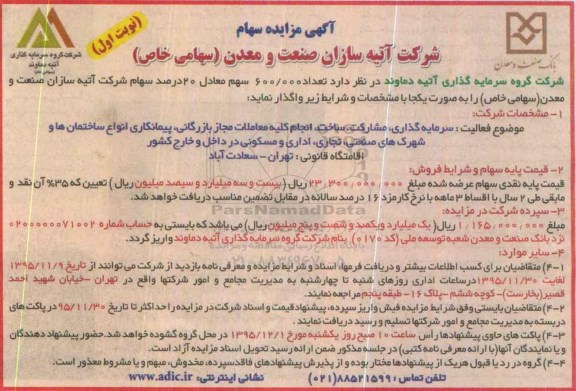 آگهی مزایده سهام
(نوبت اول)
شرکت آتیه سازان صنعت و معدن (سهامی خاص)
بانک صنعت و معدن
شرکت گروه سرمایه گذاری
آتیه دماوند
(سهامی عام)
شرکت گروه سرمایه گذاری آتیه دماوند در نظر دارد تعداد ۶۰۰/۰۰۰ سهم معادل ۲۰ درصد سهام شرکت آتیه سازان صنعت و
معدن(سهامی خاص) را به صورت یکجا با مشخصات و شرایط زیر واگذار نماید:
۱- مشخصات شرکت:
موضوع فعالیت : سرمایه گذاری، مشارکت، ساخت، انجام کلیه معاملات مجاز بازرگانی، پیمانکاری انواع ساختمان ها و
شهرک های صنعتی، تجاری، اداری و مسکونی در داخل و خارج کشور
اقامتگاه قانونی : تهران - سعادت آباد
۲- قیمت پایه سهام و شرایط فروش:
قیمت پایه نقدی سهام عرضه شده مبلغ ۲۳,۳۰۰,۰۰۰,۰۰۰ ریال (بیست و سه میلیارد و سیصد میلیون ریال) تعیین که ۳۵% آن نقد و
مابقی طی ۲ سال با اقساط ۳ ماهه با نرخ کارمزد ۱۶ درصد سالانه در مقابل تضمین مناسب دریافت خواهد شد.
۳- سپرده شرکت در مزایده:
مبلغ ۱,۱۶۵,۰۰۰,۰۰۰ ریال( یک میلیارد و یکصد و شصت و پنج میلیون ریال) می باشد که بایستی به حساب شماره ۰۲۰۰۰۰۰۰۷۱۰۰۲
نزد بانک صنعت و معدن شعبه توسعه ملی (کد ۰۱۷۰) بنام شرکت گروه سرمایه گذاری آتیه دماوند واریز گردد.
۴- سایر موارد:
۴-۱) متقاضیان برای کسب اطلاعات بیشتر و دریافت فرمها، اسناد و شرایط مزایده و معرفی نامه بازدید از شرکت می توانند از تاریخ ۱۳۹۵/۱۱/۹
لغایت ۱۳۹۵/۱۱/۳۰ در ساعات اداری روزهای شنبه تا چهارشنبه به مدیریت مجامع و امور شرکتها واقع در تهران -خیابان شهید احمد
قصیر(بخارست)- کوچه ششم - پلاک ۱۶- طبقه پنجم مراجعه نمایند.
۴-۲) متقاضیان بایستی وفق شرایط مزایده فیش واریز سپرده، پیشنهاد قیمت و اسناد شرکت در مزایده را حداکثر تا تاریخ ۹۵/۱۱/۳۰ در پاکت های
دربسته به مدیریت مجامع و امور شرکتها تسلیم و رسید دریافت نمایند .
۴-۳) پاکت های حاوی پیشنهادها رأس ساعت ۱۰ صبح روز یکشنبه مورخ ۱۳۹۵/۱۲/۱ در محل گروه گشوده خواهد شد. حضور پیشنهاد دهندگان
و یا نمایندگان آنها(با ارائه معرفی نامه کتبی) در جلسه مذکور ضمن ارائه رسید تحویل اسناد مزایده آزاد است.
۴-۴) گروه در رد یا قبول هریک از پیشنهادها مختار بوده و از پذیرش پیشنهادهای فاقد سپرده، مخدوش، مبهم و یا مشروط معذور است.
تلفن تماس: ۸۸۵۲۱۵۹۹(۰۲۱) نشانی اینترنتی: www.adic.ir
ParsNamadData